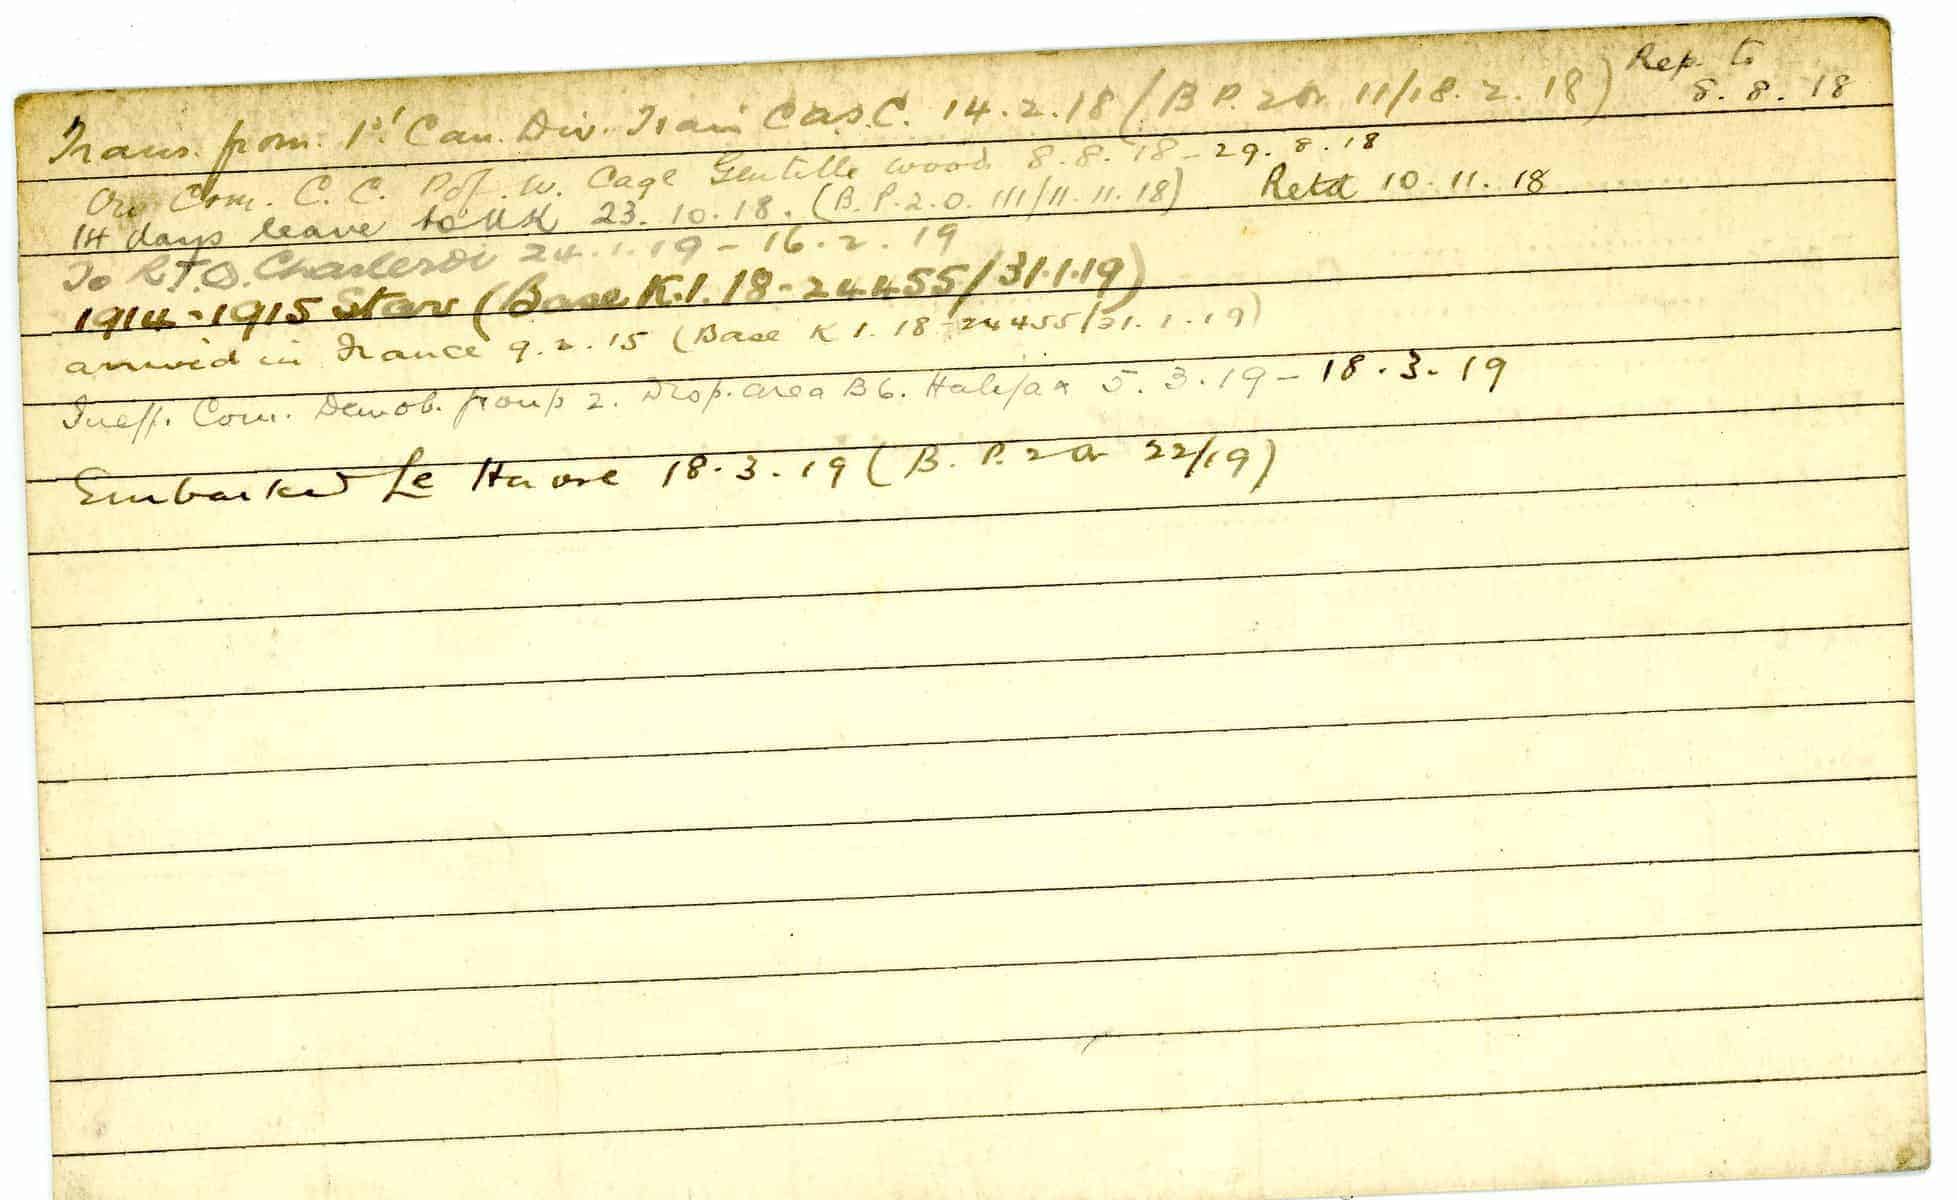 Trans. from 1st Can. Div. Train C.A.S.C. 14.2.18 (B P. 2 Or 11/18.2.18) Rep. to
8.8.18
On Com. C. C. P of W. Cage Gentelle wood 8.8.18 - 29.8.18
14 days leave to UK 23.10.18. (B.P.2.O. 111/11.11.18) Retd 10.11.18
To R.T.O. Charleroi 24.1.19 - 16.2.19
1914-1915 Star (Base K.1.18-24455/31.1.19)
arrived in France 9.2.15 (Base K 1.18-24455/31.1.19)
Ineff. Com. Demob. group 2. Disp. area B6. Halifax 5.3.19 - 18.3.19
Embarked Le Havre 18.3.19 (B. P. 2 Or 22/19)